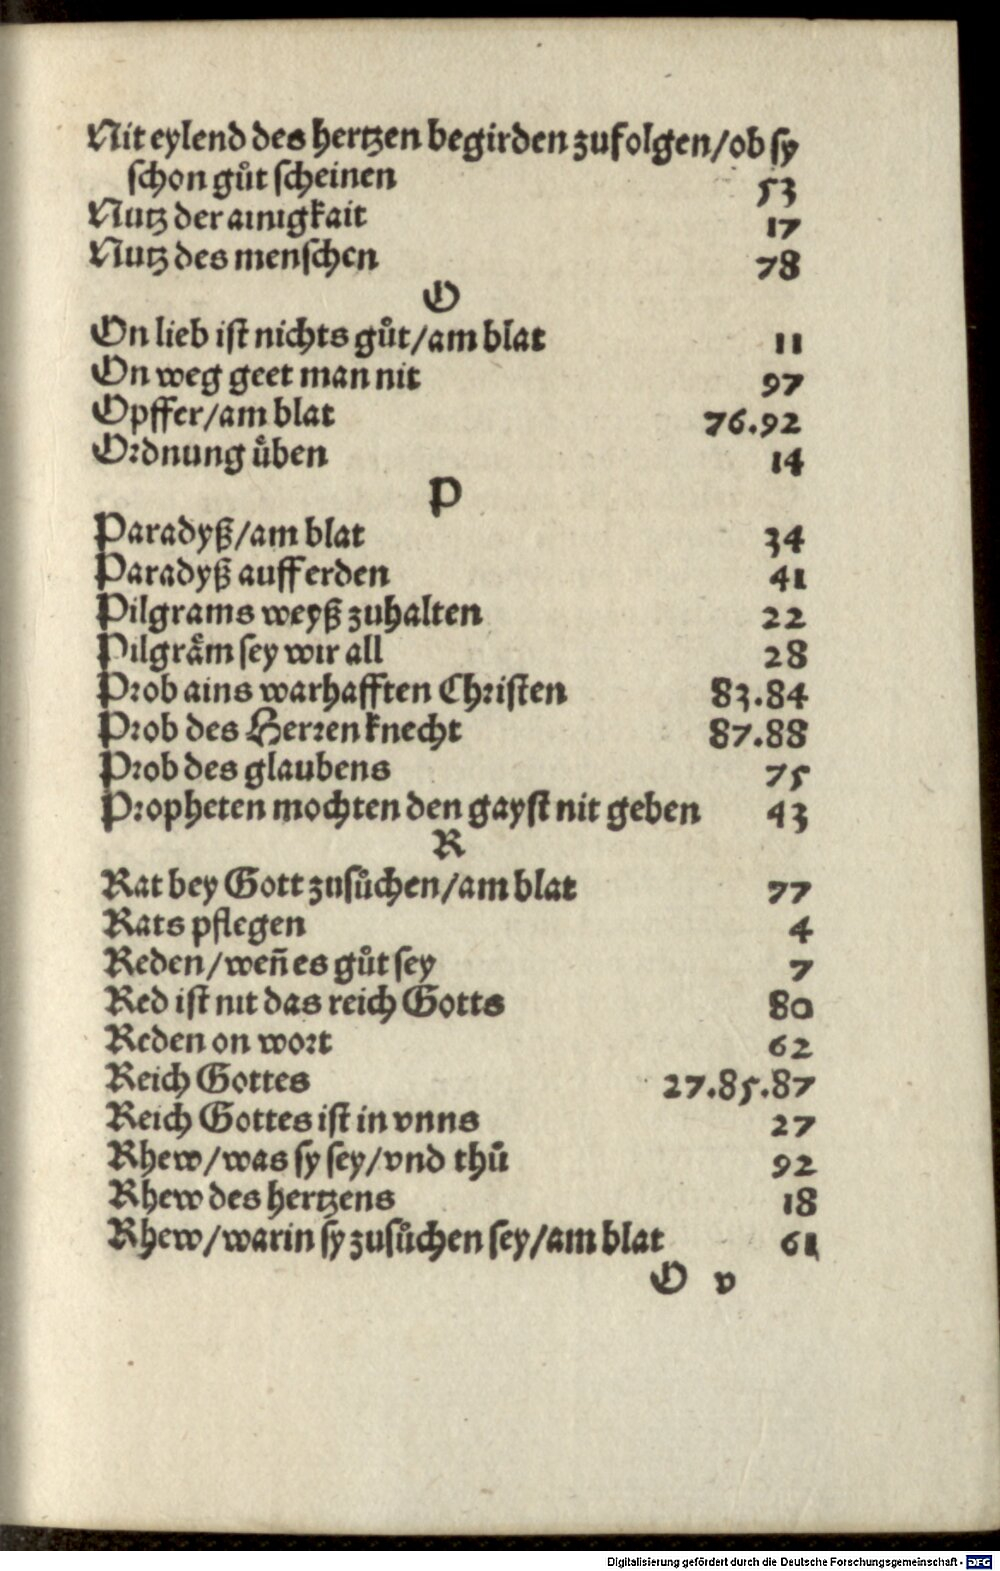 Nit eylend des hertzen begirden zufolgen/ob sy
schon gůt scheinen 53
Nutz der ainigkait 17
Nutz des menschen 78
O
On lieb ist nichts gůt/am blat 11
On weg geet man nit 97
Opffer/am blat 76.92
Ordnung uͤben 14
P
Paradyß/am blat 34
Paradyß auff erden 41
Pilgrams weyß zuhalten 22
Pilgraͤm sey wir all 28
Prob ains warhafften Christen 83.84
Prob des Herren knecht 87.88
Prob des glaubens 75
Propheten mochten den gayst nit geben 43
R
Rat bey Gott zusůchen/am blat 77
Rats pflegen 4
Reden/weñ es gůt sey 7
Red ist nit das reich Gotts 80
Reden on wort 62
Reich Gottes 27.85.87
Reich Gottes ist in vnns 27
Rhew/was sy sey/vnd thů 92
Rhew des hertzens 18
Rhew/warin sy zusůchen sey/am blat 61
O v
Digitalisierung gefördert durch die Deutsche Forschungsgemeinschaft - DFG